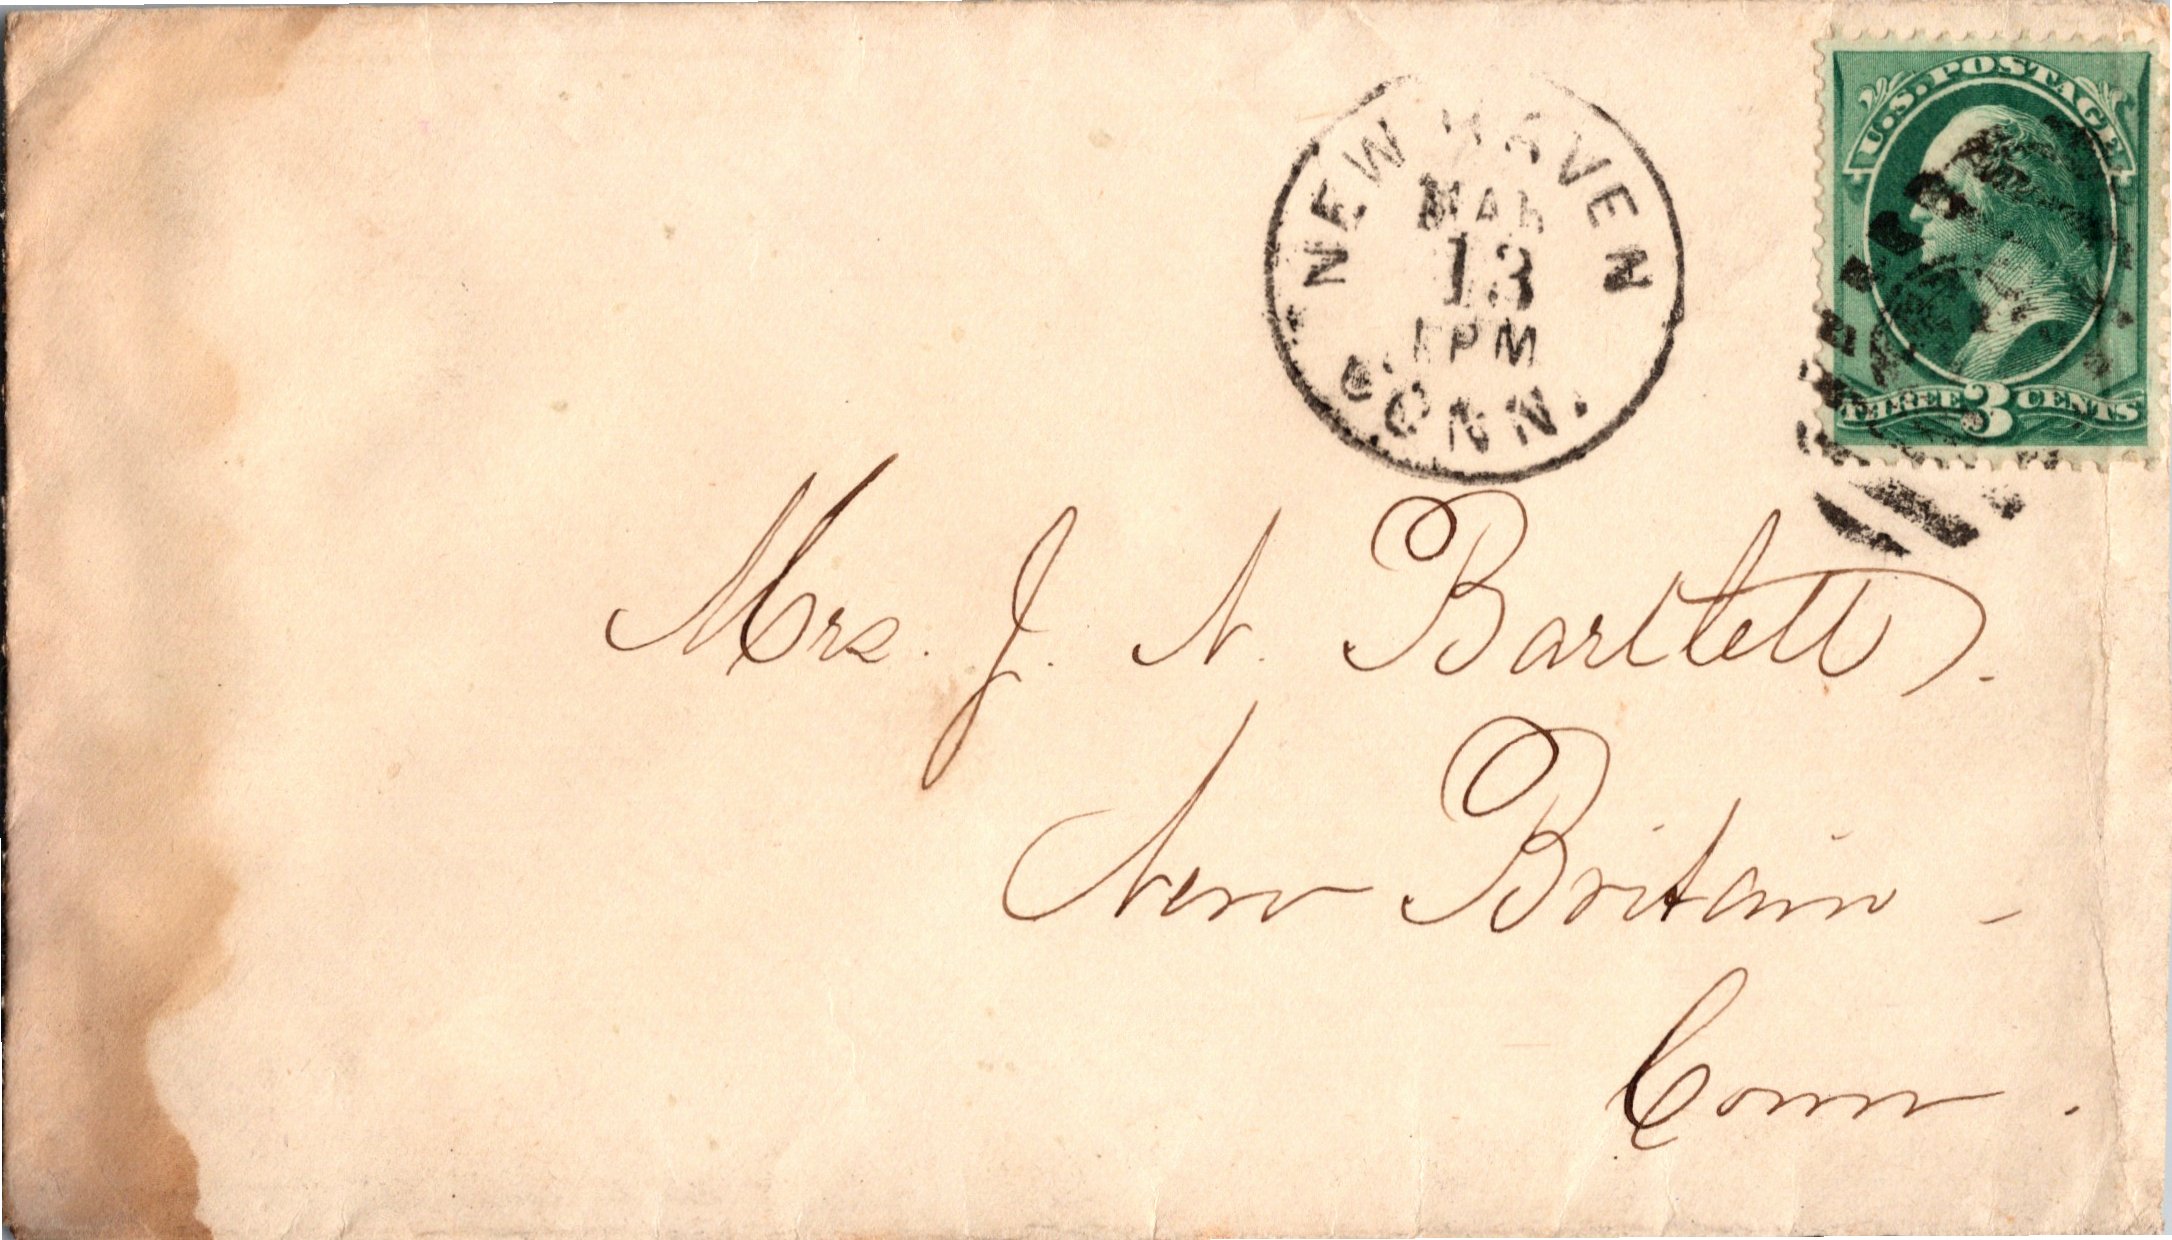 U.S. POSTAGE
NEW HAVEN
MAR
13
PM
CONN.
THREE 3 CENTS
Mrs. J. N. Bartlett.
New Britain -
Conn.